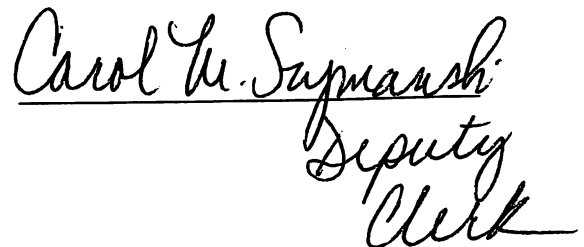 Carol M. Szymanski
Deputy
Clerk